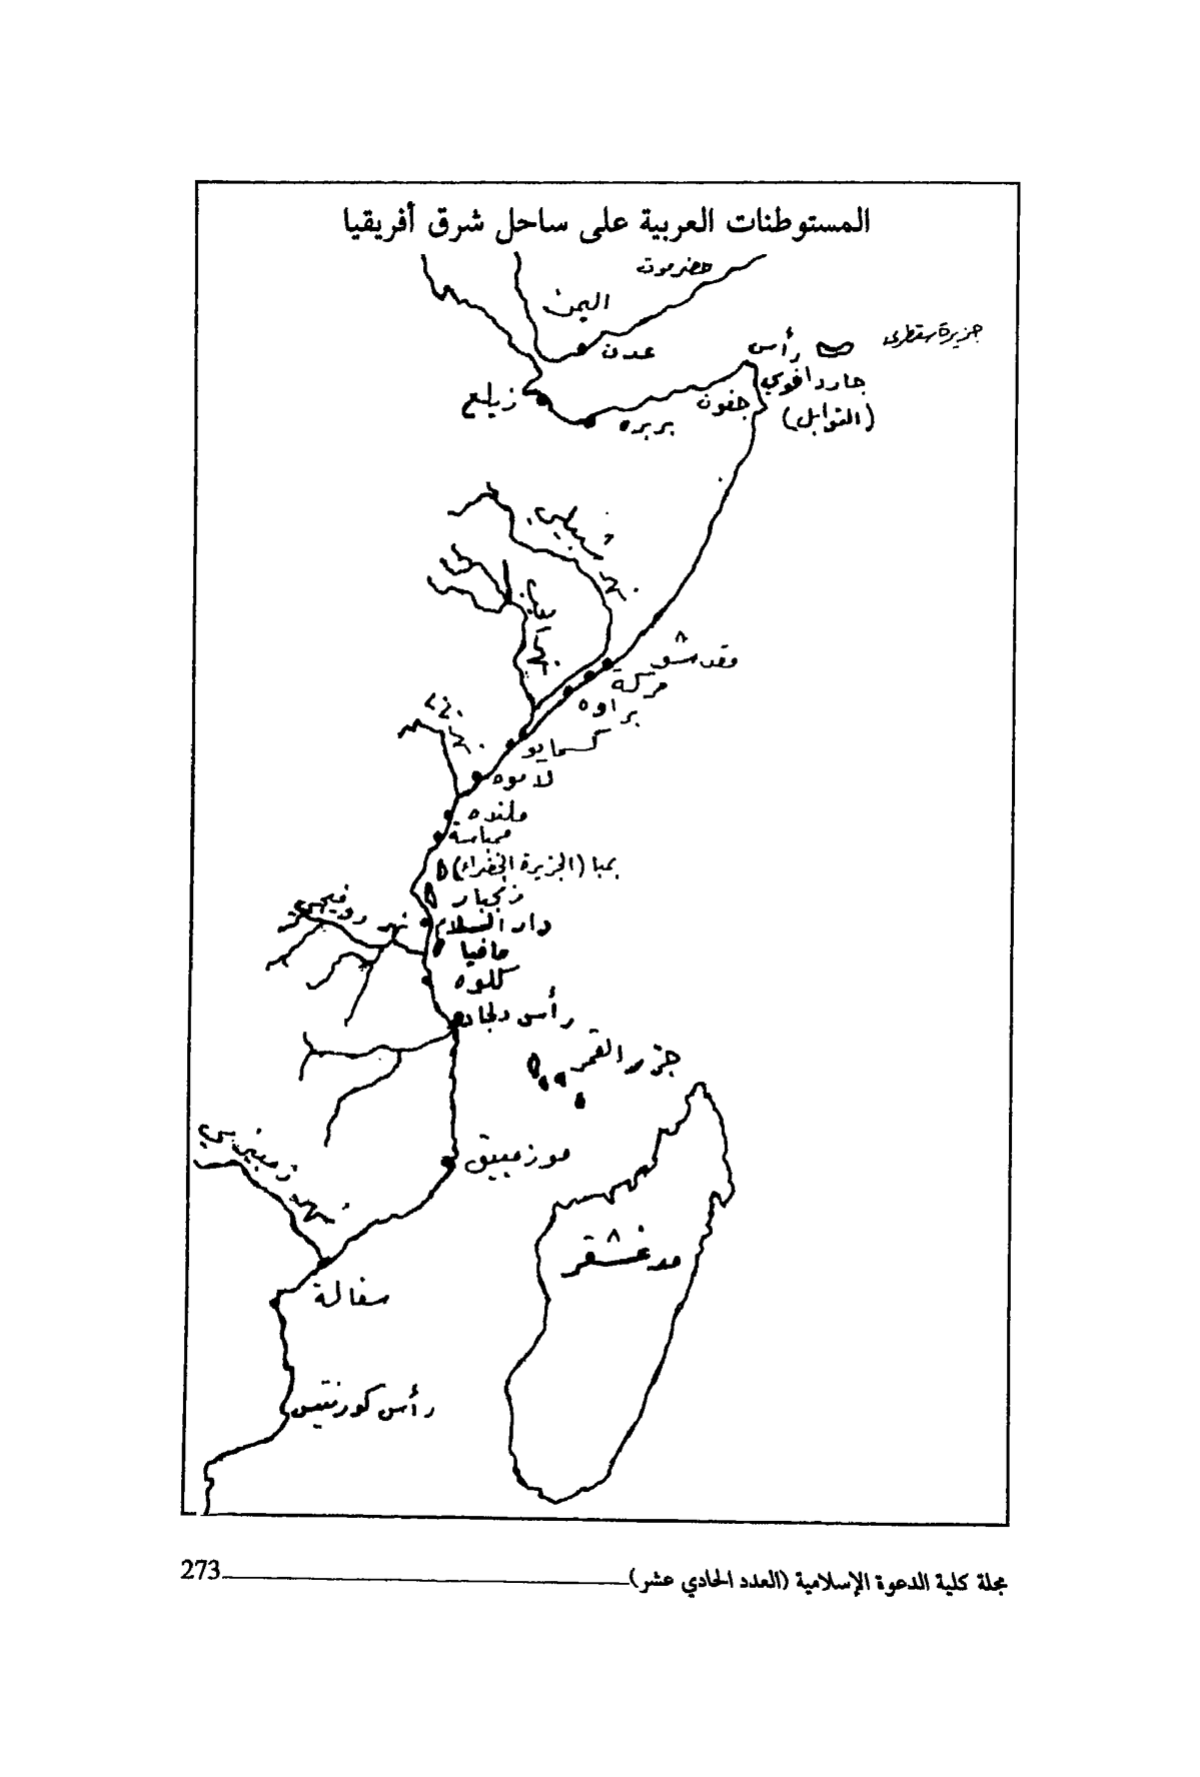 المستوطنات العربية على ساحل شرق أفريقيا
حضرموت
اليمن
عدن
جزيرة سقطرى
رأس
جاردافوي
(التوابل)
جفون
زيلع
بربره
شبيلي
نهر
نهر
مقدشو
مركة
براوه
كسمايو
نهر
لاموه
ملنده
ممباسة
بمبا (الجزيرة الخضراء)
زنجبار
نهر روفيجي
دار السلام
مافيا
كلوه
رأس دلجادو
جزر القمر
موزمبيق
نهر زمبيزي
مدغشقر
سفالة
رأس كورنتيس
مجلة كلية الدعوة الإسلامية (العدد الحادي عشر)
273